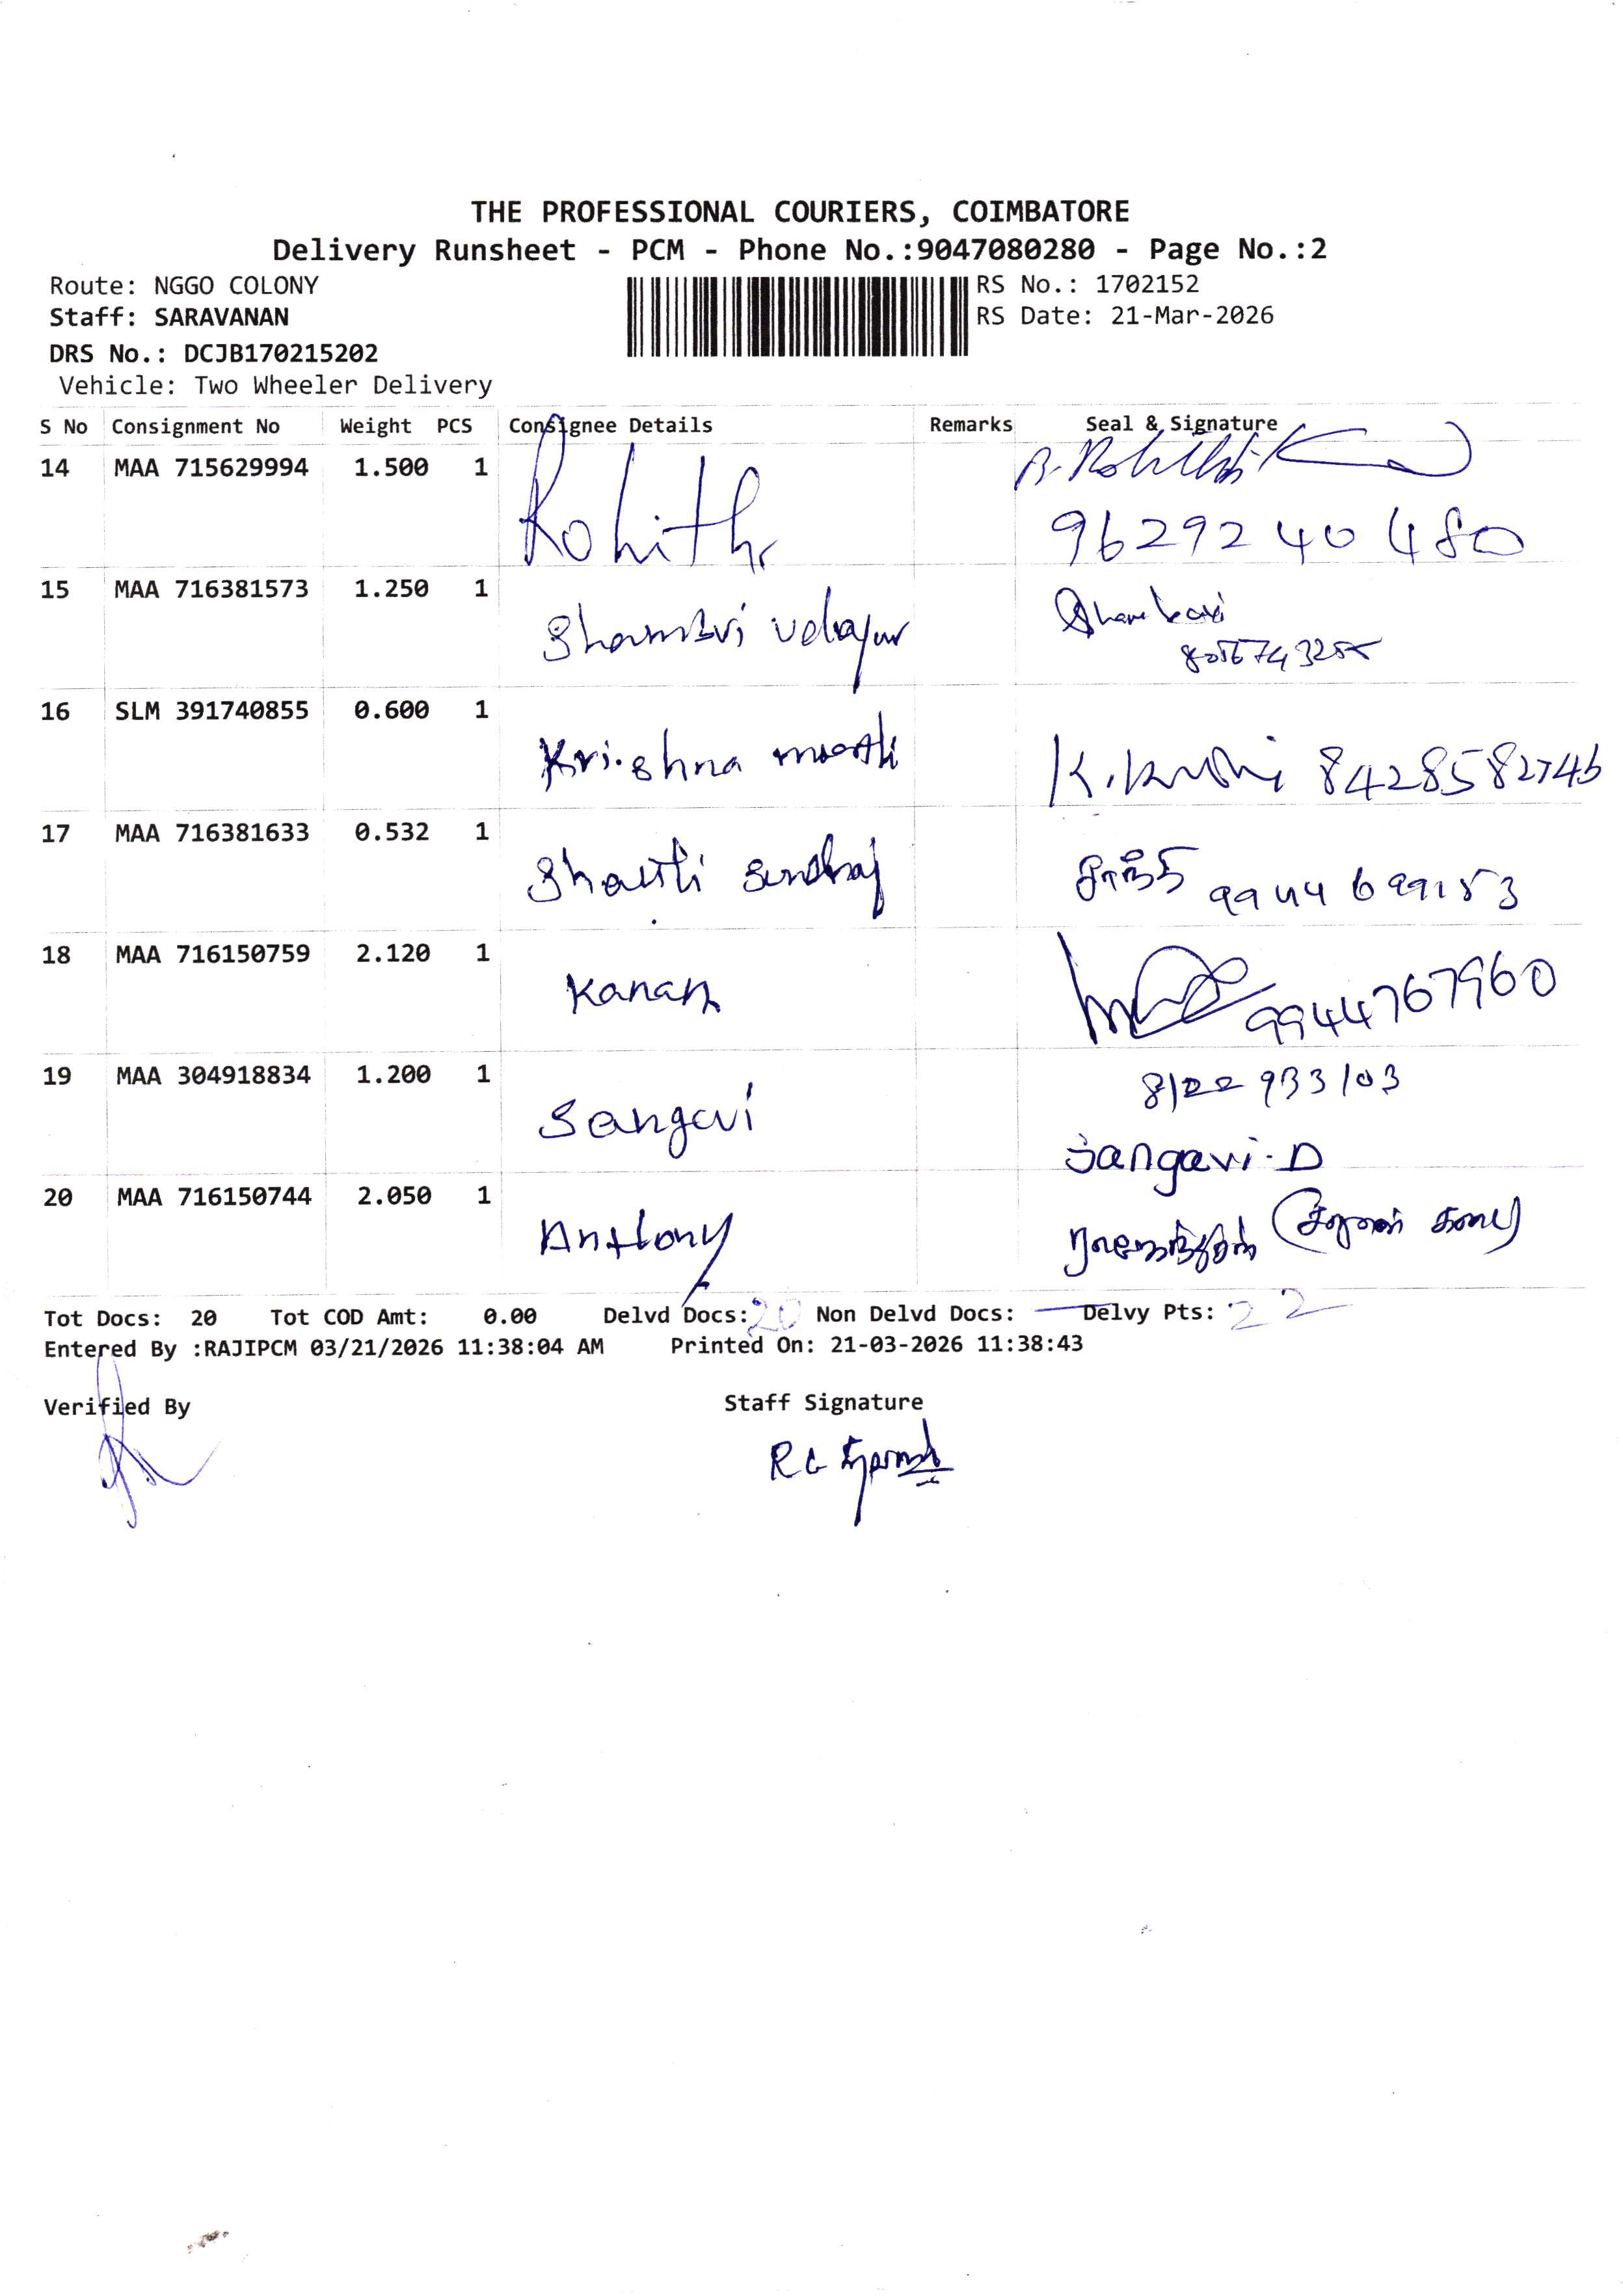 THE PROFESSIONAL COURIERS, COIMBATORE
Delivery Runsheet - PCM - Phone No.:9047080280 - Page No.:2
Route: NGGO COLONY
RS No.: 1702152
Staff: SARAVANAN
RS Date: 21-Mar-2026
DRS No.: DCJB170215202
Vehicle: Two Wheeler Delivery
S No Consignment No Weight PCS Consignee Details Remarks Seal & Signature
14 MAA 715629994 1.500 1 Rohith
9629240480
15 MAA 716381573 1.250 1
16 SLM 391740855 0.600 1 Krishna moorthi
8428582746
17 MAA 716381633 0.532 1 Shanthi
சாந்தி 9944699153
18 MAA 716150759 2.120 1 Kanan
9944767960
19 MAA 304918834 1.200 1 Sangavi
8122933103
Sangavi.D
20 MAA 716150744 2.050 1 Anthony
Tot Docs: 20 Tot COD Amt: 0.00 Delvd Docs: 20 Non Delvd Docs: — Delvy Pts: 22
Entered By :RAJIPCM 03/21/2026 11:38:04 AM Printed On: 21-03-2026 11:38:43
Verified By
Staff Signature